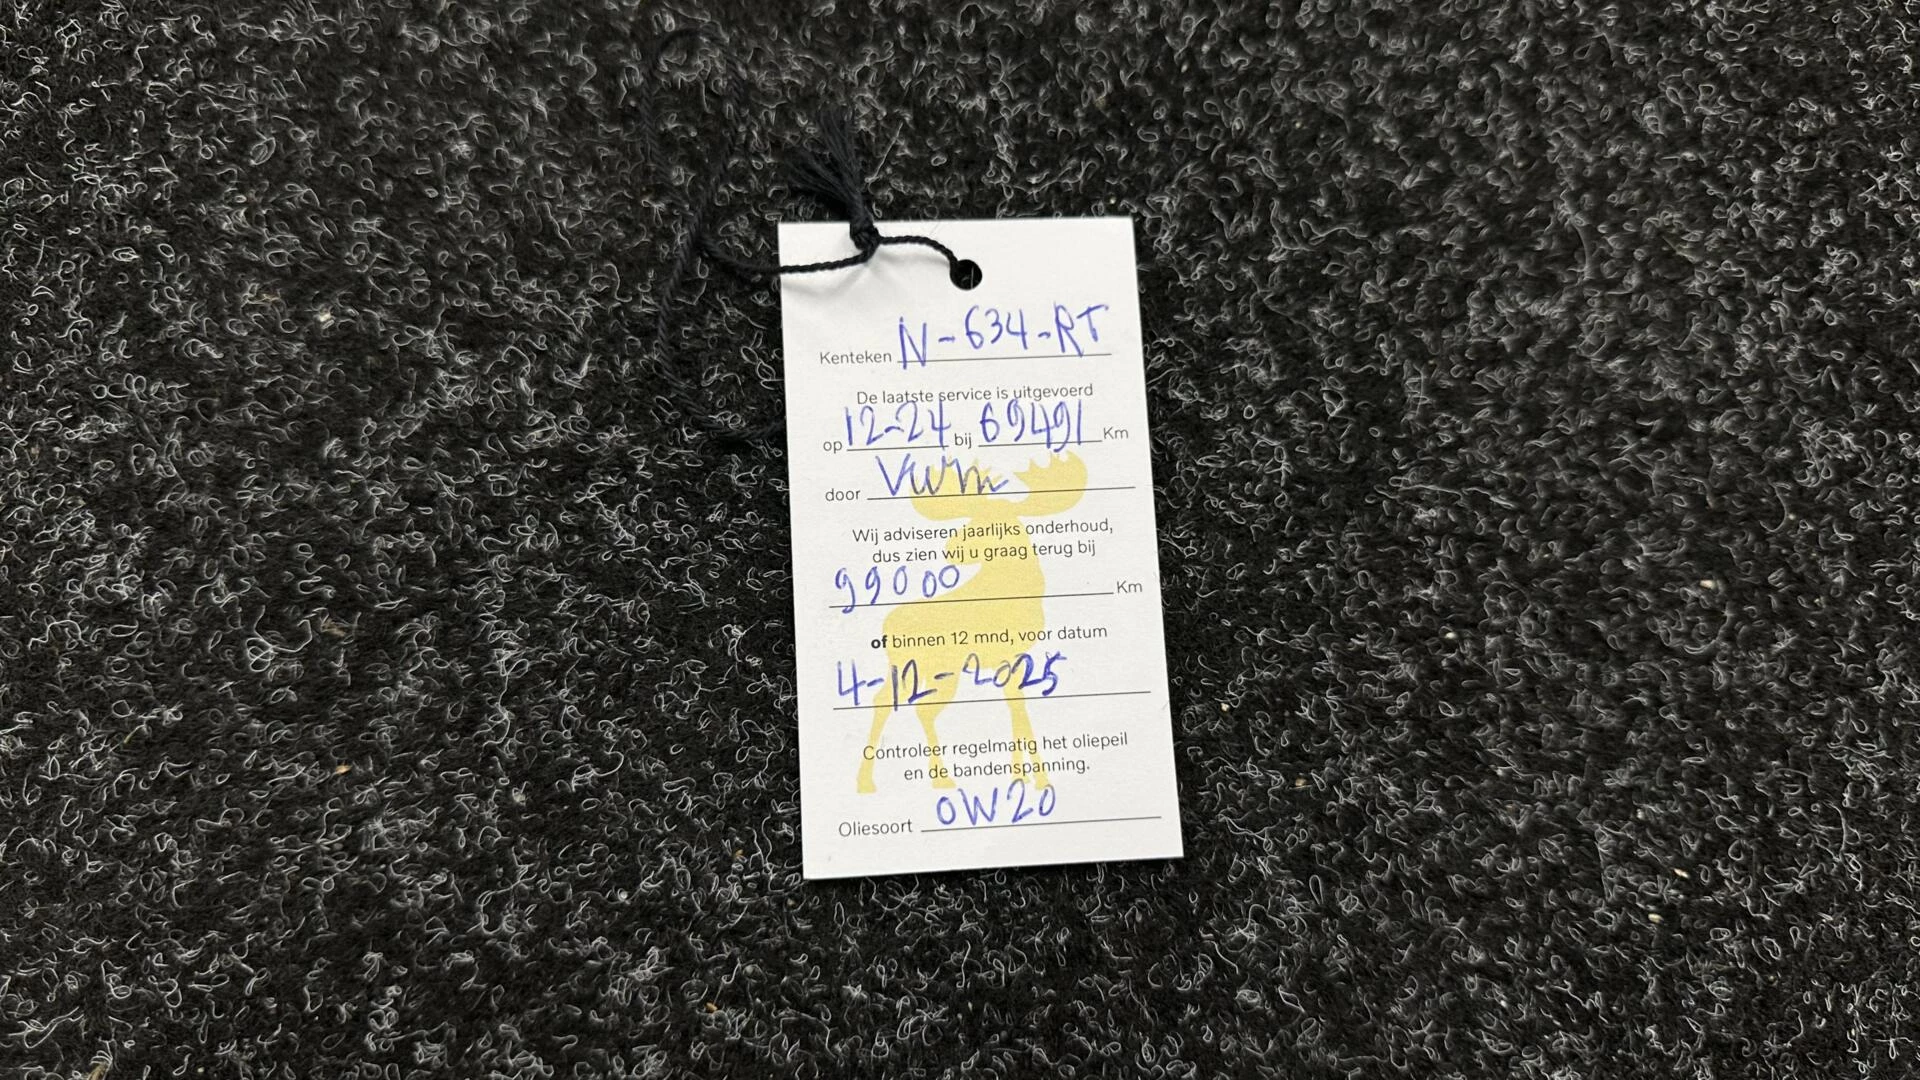 Kenteken N-634-RT
De laatste service is uitgevoerd
op 12-24 bij 69491 Km
door VWM
Wij adviseren jaarlijks onderhoud,
dus zien wij u graag terug bij
99000 Km
of binnen 12 mnd, voor datum
4-12-2025
Controleer regelmatig het oliepeil
en de bandenspanning.
Oliesoort 0W20